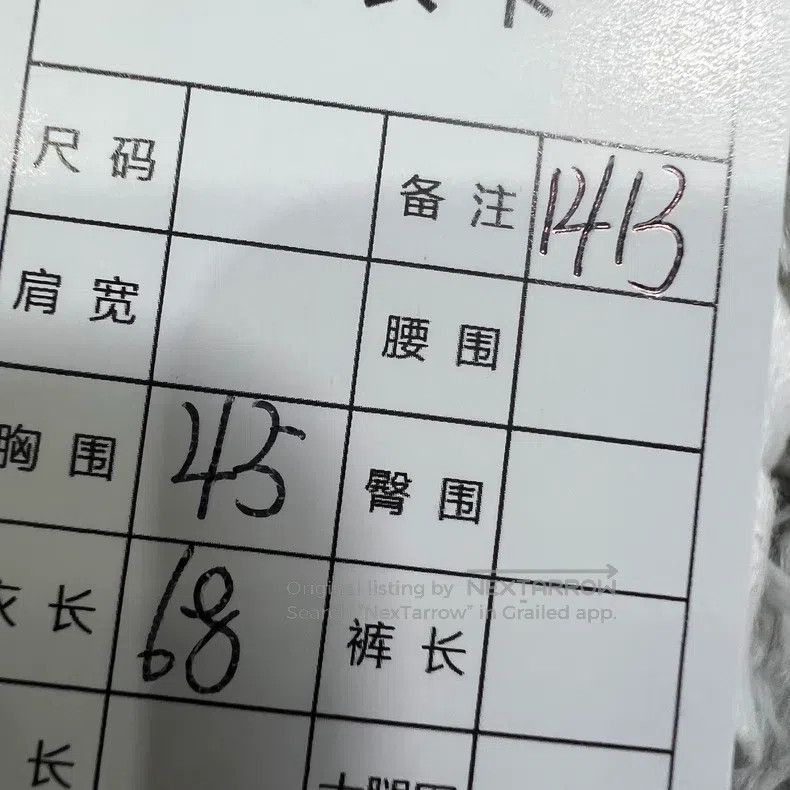 尺码 备注 1413
肩宽 腰围
胸围 45 臀围
衣长 68 裤长
Original listing by NEXTARROW
Search "NexTarrow" in Grailed app.
长 大腿围